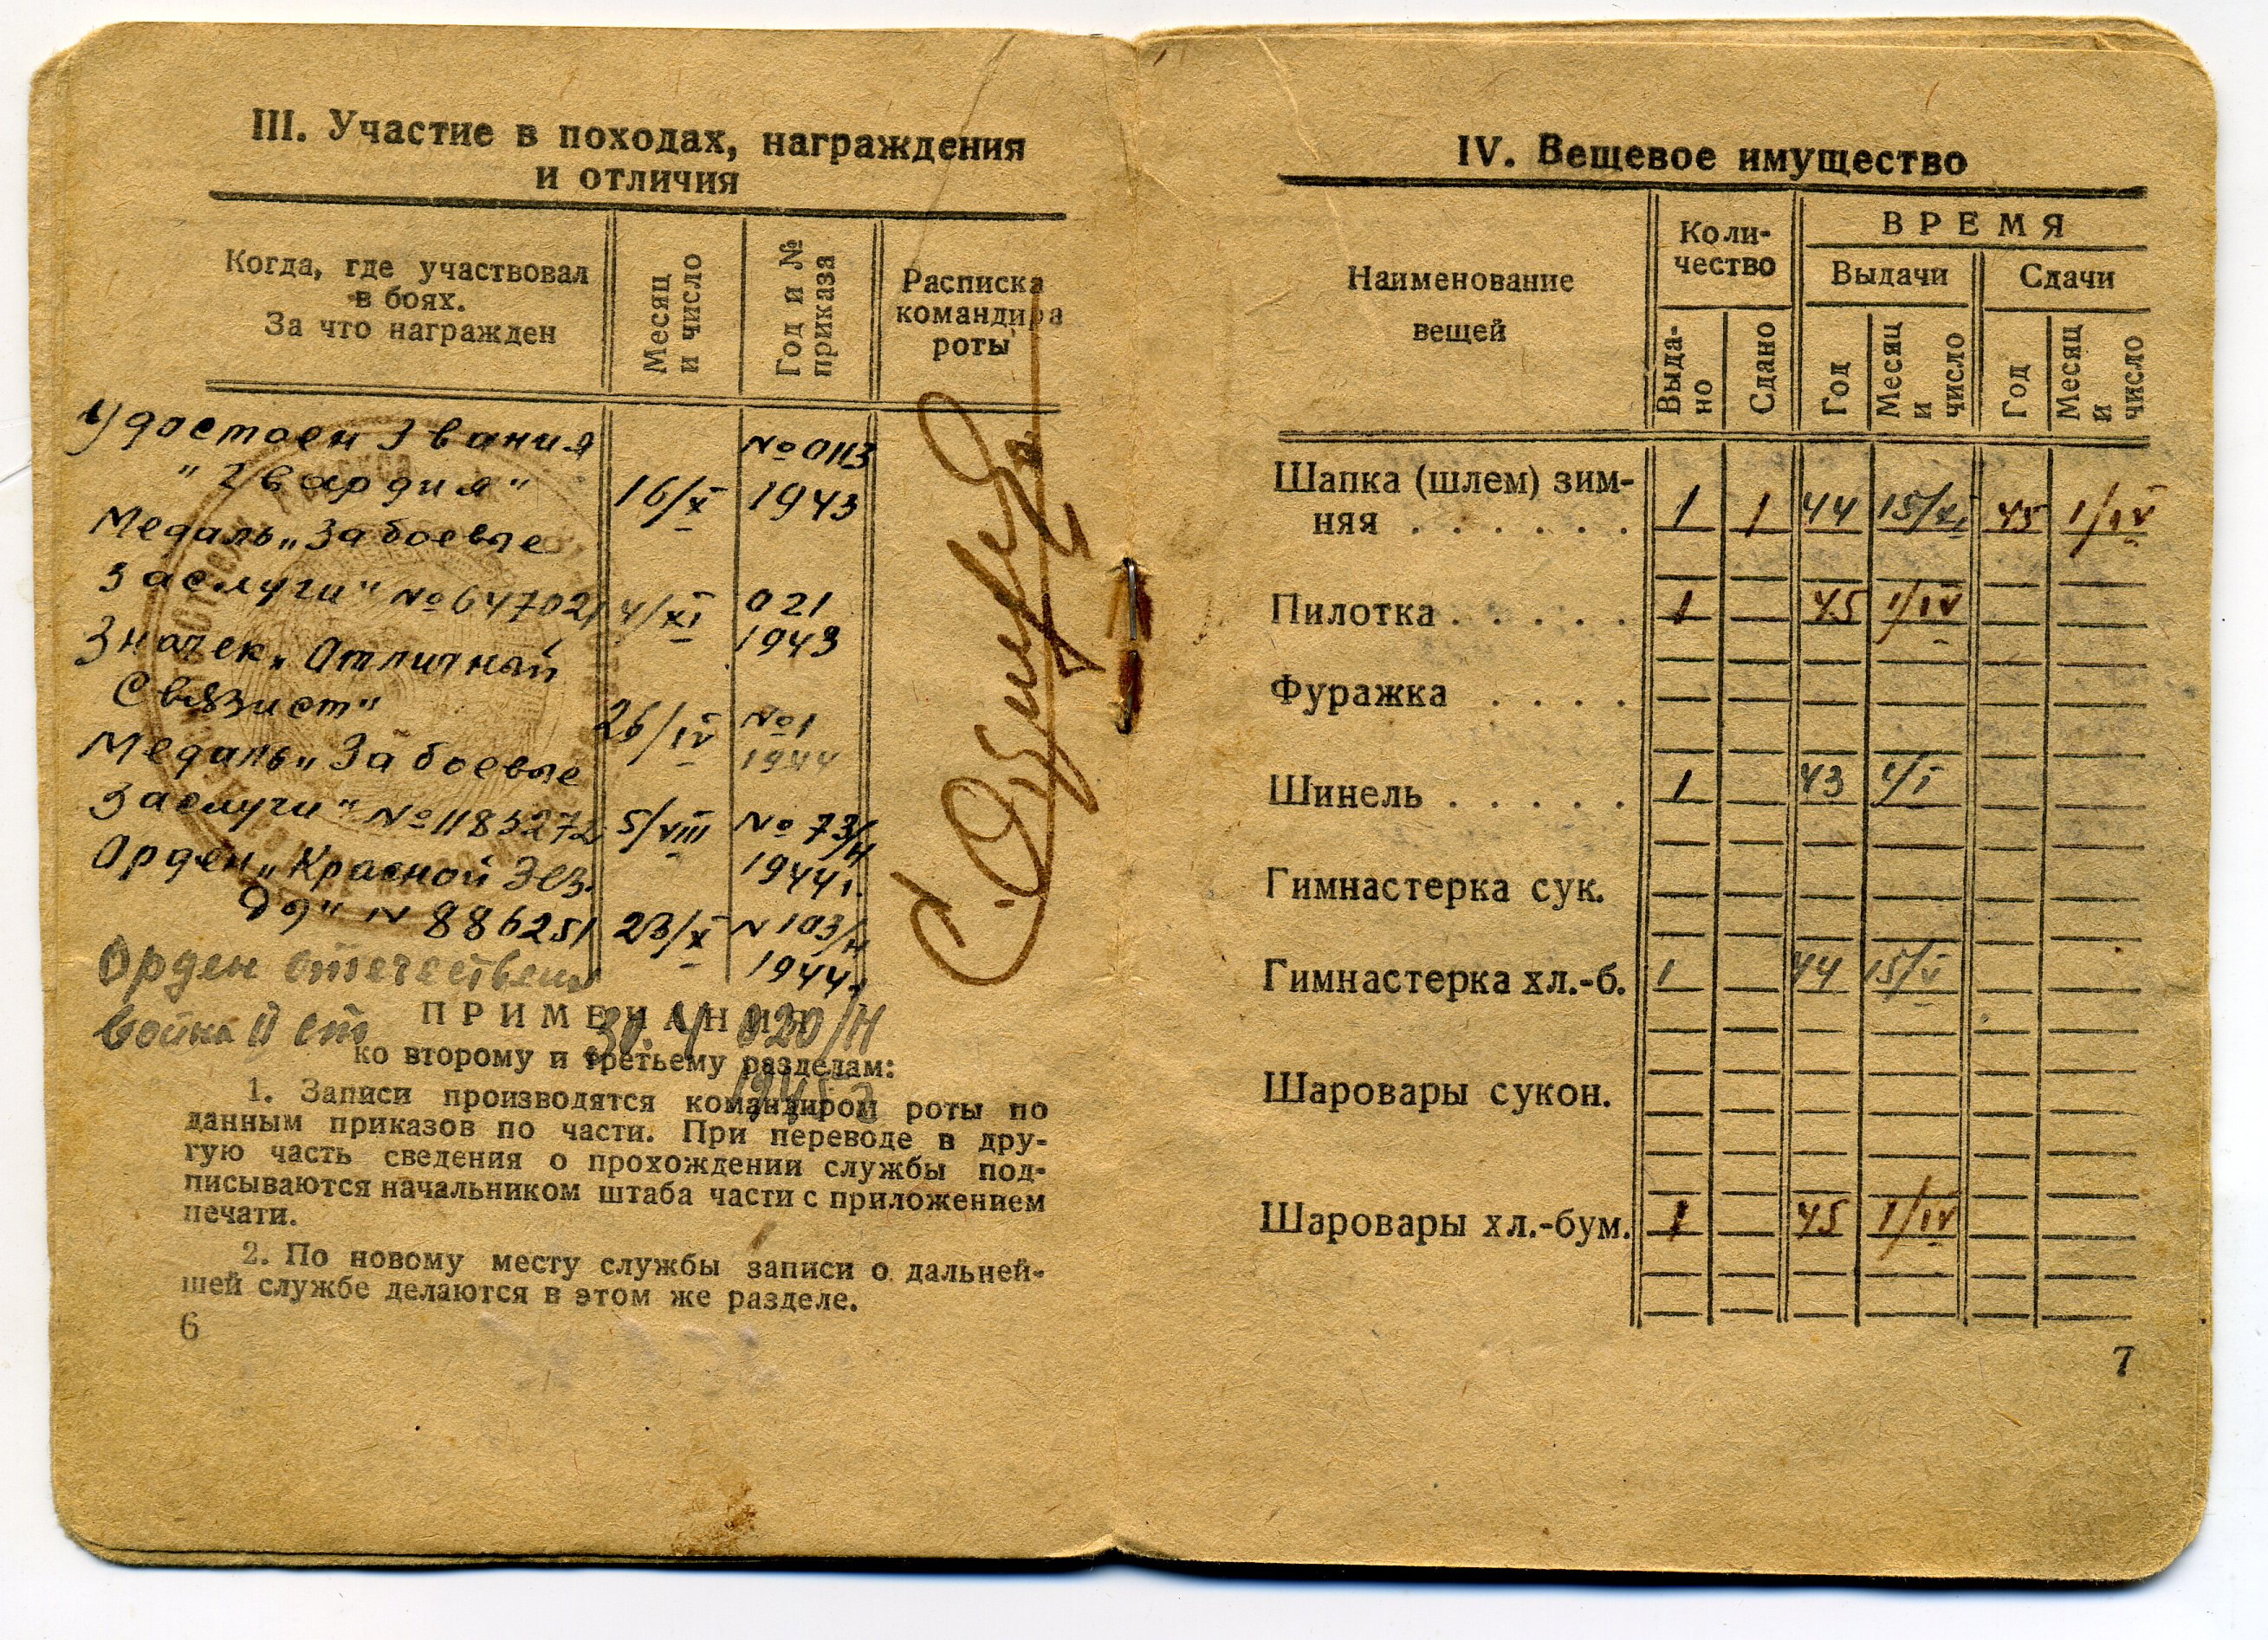 III. Участие в походах, награждения
и отличия
Когда, где участвовал
в боях.
За что награжден
Месяц
и число
Год и №
приказа
Расписка
командира
роты
Удостоен звания
№ 0113
"Гвардия"
16/X
1943
Медаль "За боевые
заслуги" № 647021
4/XI
021
1943
Значек "Отличный
Связист"
26/IV
№ 1
1944
Медаль "За боевые
заслуги" № 1183272
5/VIII
№ 73/н
1944 г.
Орден "Красной Звез
да" N 886251
23/X
N 103/н
1944 г.
Орден отечествен
война II ст
30.
020/н
ПРИМЕЧАНИЯ
ко второму и третьему разделам:
1. Записи производятся командиром роты по
данным приказов по части. При переводе в дру-
гую часть сведения о прохождении службы под-
писываются начальником штаба части с приложением
печати.
2. По новому месту службы записи о дальней-
шей службе делаются в этом же разделе.
6
IV. Вещевое имущество
Наименование
вещей
Коли-
чество
ВРЕМЯ
Выдачи
Сдачи
Выда-
но
Сдано
Год
Месяц
и
число
Год
Месяц
и
число
Шапка (шлем) зим-
няя . . . . . . 1 1 44 15/XI 45 1/IV
Пилотка . . . . . 1 45 1/IV
Фуражка . . . .
Шинель . . . . . 1 43 1/I
Гимнастерка сук.
Гимнастерка хл.-б. 1 44 15/V
Шаровары сукон.
Шаровары хл.-бум. 1 45 1/IV
7